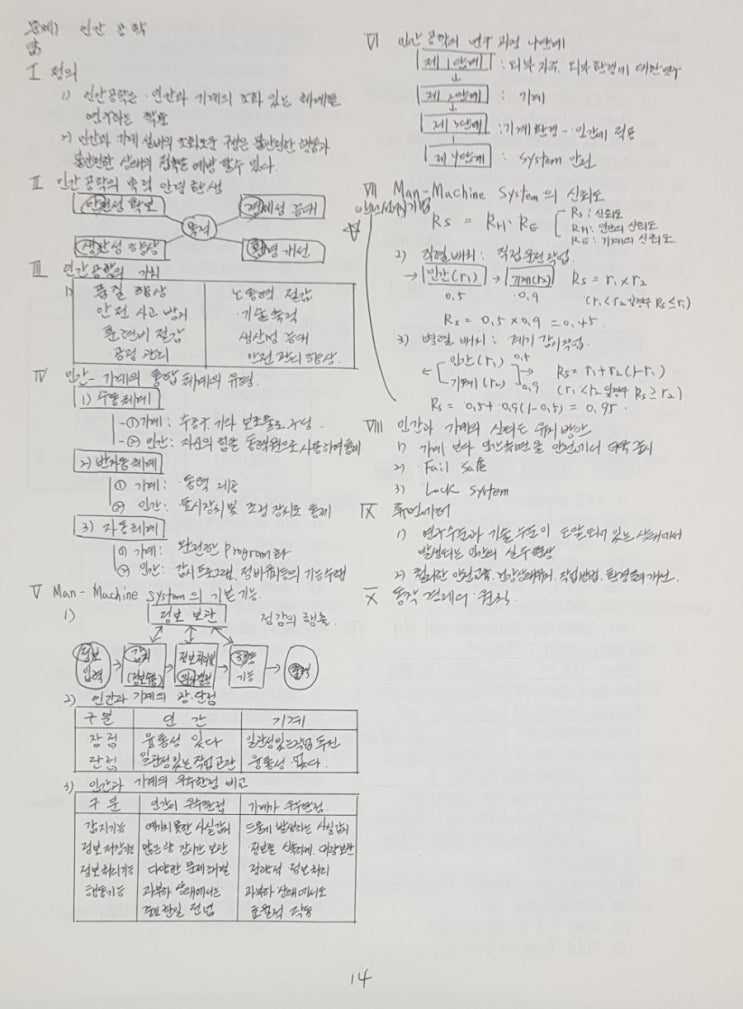 문제) 인간 공학
답
I 정의
1) 인간공학은 인간과 기계의 조화 있는 체계를
연구하는 학문
2) 인간과 기계 설비의 조화로운 구성은 불안전한 행동과
불안전한 상태의 접촉을 예방 할수 있다.
II 인간 공학의 목적 안생경환
안전성 확보 경제성 증대
목적
생산성 향상 환경 개선
III 인간공학의 가치
1) 품질 향상 노동력 절감
안전 사고 방지 기술 축적
훈련비 절감 생산성 증대
공정 관리 안전 관리 향상.
IV 인간- 기계의 통합 체계의 유형.
1) 수동체계
-① 기계: 수공구 기타 보조물로 구성
-② 인간: 자신의 힘을 동력원으로 사용하여 통제
2) 반자동체계
① 기계: 동력 제공
② 인간: 표시장치 및 조정 장치로 통제
3) 자동체계
① 기계: 완전한 Program화
② 인간: 감시 프로그램, 정비유지 등의 기능수행
V Man- Machine system의 기본 기능.
1) 정보 보관 정감의 행출
정보 입력 감지 (정보수용) 정보처리 및 의사결정 행동 기능 출력
2) 인간과 기계의 장·단점
구분 인 간 기계
장점 융통성 있다 일관성있는 작업 수행
단점 일관성있는 작업 곤란 융통성 없다.
3) 인간과 기계의 우수한점 비교
구 분 인간이 우수한점 기계가 우수한점.
감지기능 예기치 못한 사실감지 드물게 발생하는 사실감지
정보 저장기능 많은량 장시간 보관 정보를 신속하게 대량보관
정보처리기능 다양한 문제해결 정량적 정보처리
행동기능 과부하 상태에서는 과부하 상태에서도
중요한일 전념 효율적 작동
VI 인간 공학의 연구 과정 4단계
제 1단계 : 외부 자극. 외부 환경에 대한 연구
제 2단계 : 기계
제 3단계 : 기계 환경 - 인간에 적응
제 4단계 : System 안전
VII Man-Machine System의 신뢰도
RS = RH · RE
RS : 신뢰도
RH : 인간의 신뢰도
RE : 기계의 신뢰도.
2) 직렬 배치 : 직접 운전 작업
→ 인간(r1) → 기계(r2) RS = r1 × r2
0.5 0.9 (r1 < r2 일경우 RS ≤ r1)
RS = 0.5 × 0.9 = 0.45.
3) 병렬 배치 : 계기 감시 작업
인간 (r1) 0.5 RS = r1 + r2 (1-r1)
기계 (r2) 0.9 (r1 < r2 일경우 RS ≥ r2)
RS = 0.5 + 0.9 (1-0.5) = 0.95.
VIII 인간과 기계의 신뢰도 유지 방안
1) 기계 보다 인간측면을 안전에서 더욱 중시
2) Fail Safe
3) Lock system
IX 휴먼에러
1) 연구수준과 기술 수준이 도달되어 있는 상태에서
발생되는 인간의 실수현상
2) 철저한 안전교육. 건강상태유지. 작업방법. 환경등의 개선.
X 동작 경제의 원칙.
14